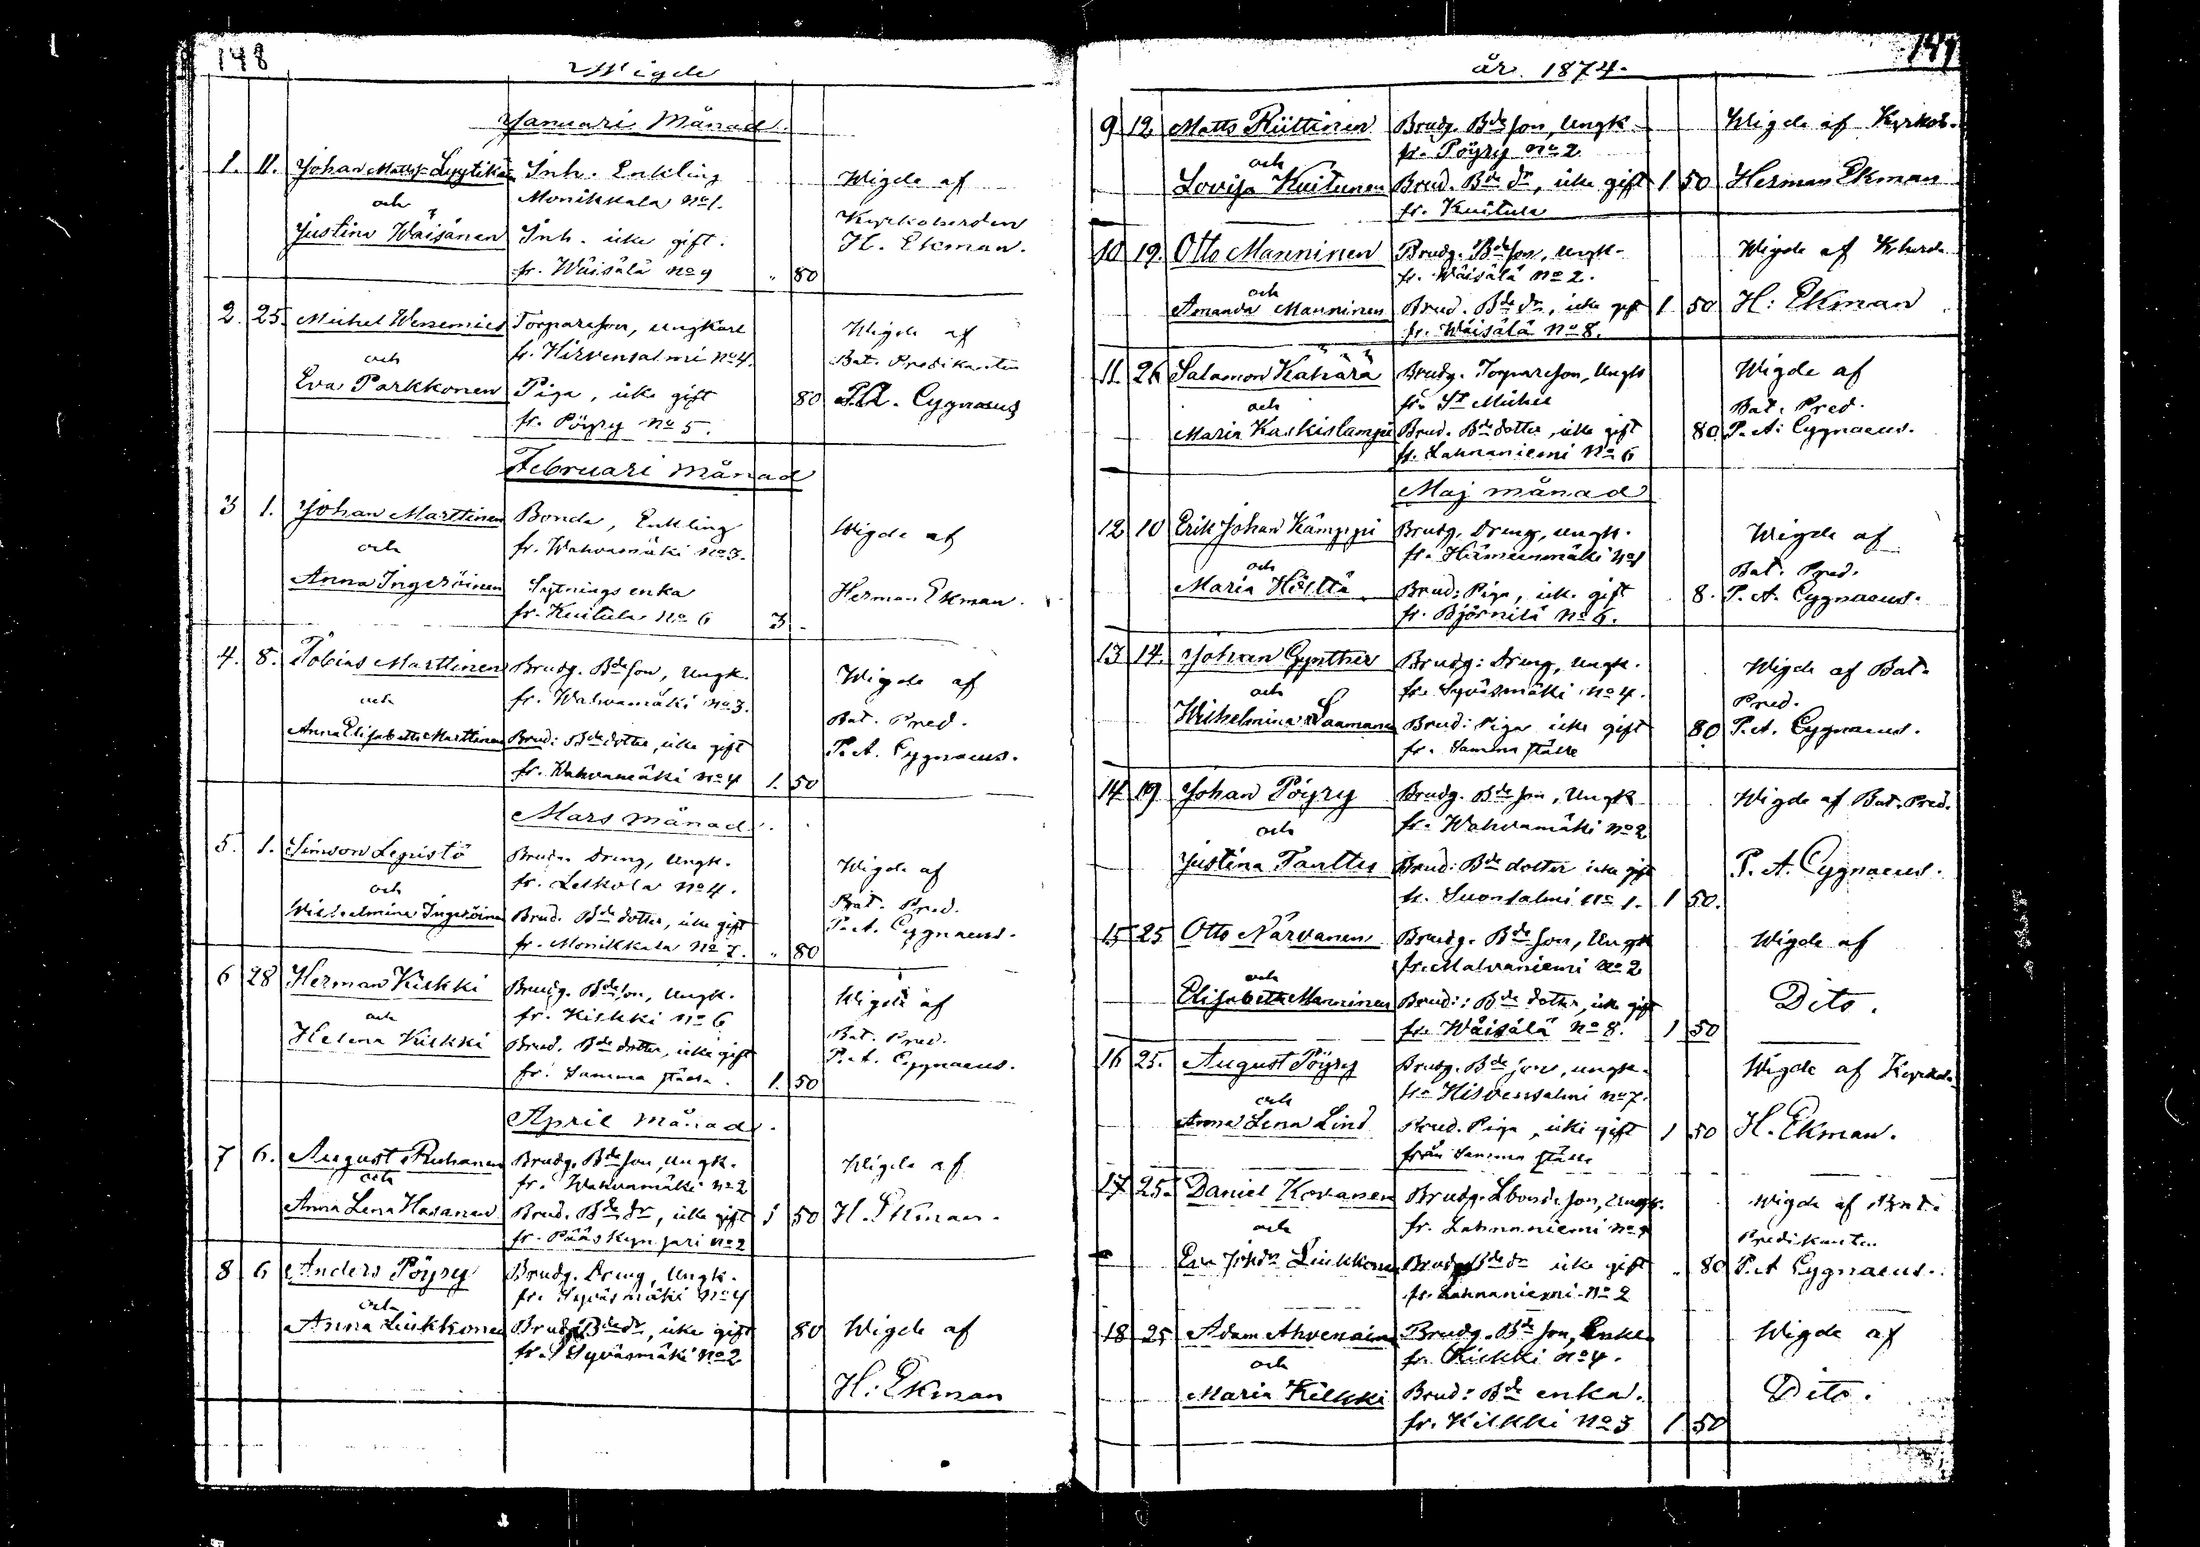 148
Wigde
Januari Månad.
1. 11. Johan Matths Lyytikäin Inh. Enkling Wigde af
och Monikkala No 1. Kyrkoherden
Justina Wäisänen Inh. icke gift. H. Ekman.
fr. Wäisälä No 9 " 80
2. 25. Michel Torpareson, ungkarl Wigde af
och fr. Hirvensalmi No 4. Bat. Predikanten
Eva Parkkonen Piga, icke gift 80 P.A. Cygnaeus
fr. Pöyry No 5.
Februari månad
3 1. Johan Marttinen Bonde, Enkling Wigde af
och fr. Wahvamäki No 3.
Anna Ingeröinen Sytnings enka Herman Ekman.
fr. Kuitula No 6 3 -
4. 8. Tobias Marttinen Brudg. Bde son, Ungk. Wigde af
och fr. Wahvamäki No 3. Bat. Pred.
Anna Elisabeth Marttinen Brud: Bde dotter, icke gift P.A. Cygnaeus.
fr. Wahvamäki No 4 1. 50
Mars månad.
5. 1. Simson Lepistö Brudg. Dreng, Ungk. Wigde af
och fr. Leskola No 4. Bat. Pred.
Wilhelmina Ingeröinen Brud. Bde dotter, icke gift P.A. Cygnaeus.
fr. Monikkala No 7. " 80
6 28 Herman Kilkki Brudg. Bde son, Ungk. Wigde af
och fr. Kilkki No 6 Bat. Pred.
Helena Kilkki Brud. Bde dotter, icke gift P.A. Cygnaeus.
fr. samma ställe. 1. 50
April månad.
7 6. August Ruhanen Brudg. Bde son, Ungk. Wigde af
och fr. Wahvamäki No 2
Anna Lena Hasanen Brud. Bde dr, icke gift 1 50 H. Ekman.
fr. Pääskynsaari No 2
8 6 Anders Pöyry Brudg. Dreng, Ungk.
och fr. Syväsmäki No 4
Anna Liukkonen Brud Bde dr, icke gift 80 Wigde af
fr. Syväsmäki No 2
H. Ekman
149
år 1874.
9 12 Matts Riittinen Brudg. Bde son, Ungk. Wigde af Kyrkoh.
och fr. Pöyry No 2.
Lovisa Kuitunen Brud. Bde dr, icke gift 1 50 Herman Ekman
fr. Kuitula
10 19. Otto Manninen Brudg. Bde son, Ungk. Wigde af
och fr. Wäisälä No 2.
Amanda Manninen Brud. Bde dr, icke gift 1 50 H: Ekman
fr. Wäisälä No 8.
11. 26 Salamon Kähärä Brudg. Torpareson, Ungk Wigde af
och fr. St Michel Bat. Pred.
Maria Kaskislampi Brud. Bde dotter, icke gift 80 P.A. Cygnaeus.
fr. Lahnaniemi No 6
Maj månad
12 10 Erik Johan Kämppi Brudg. Dreng, Ungk. Wigde af
och Bat. Pred.
Maria Höltta Brud: Piga, icke gift 8. P.A. Cygnaeus.
fr. Björnilä No 6.
13 14. Johan Gynther Brudg: Dreng, Ungk. Wigde af Bat.
och fr. Syväsmäki No 4. Pred.
Wilhelmina Laamanen Brud: Piga icke gift 80 P.A. Cygnaeus.
fr. samma ställe
14 19 Johan Pöyry Brudg. Bde son, Ungk Wigde af Bat. Pred.
och fr. Wahvamäki No 2
Justina Paulter Brud: Bde dotter icke gift P.A. Cygnaeus.
fr. Suonsalmi No 1. 1 50.
15 25 Otto Närvänen Brudg. Bde son, Ungk Wigde af
och fr. Malvaniemi No 2
Elisabeth Manninen Brud: Bde dotter, icke gift Dito.
fr. Wäisälä No 8. 1 50
16 25. August Pöyry Brudg. Bde son, Ungk. Wigde af Kyrkoh.
och fr. Hirvensalmi No 7.
Anna Lena Lind Brud. Piga, icke gift 1 50 H. Ekman.
från samma ställe
17 25. Daniel Kovanen Brudg. Lbonde son, Ungk. Wigde af Bat.
och fr. Lahnaniemi Predikanten
Eva Liukkonen Brud Bde dr icke gift " 80 P.A Cygnaeus.
fr. Lahnaniemi No 2
18 25 Adam Ahvenainen Brudg. Bde son, Enkl Wigde af
och fr. Kilkki No 4.
Maria Kilkki Brud: Bde enka. Dito.
fr. Kilkki No 3 1 50